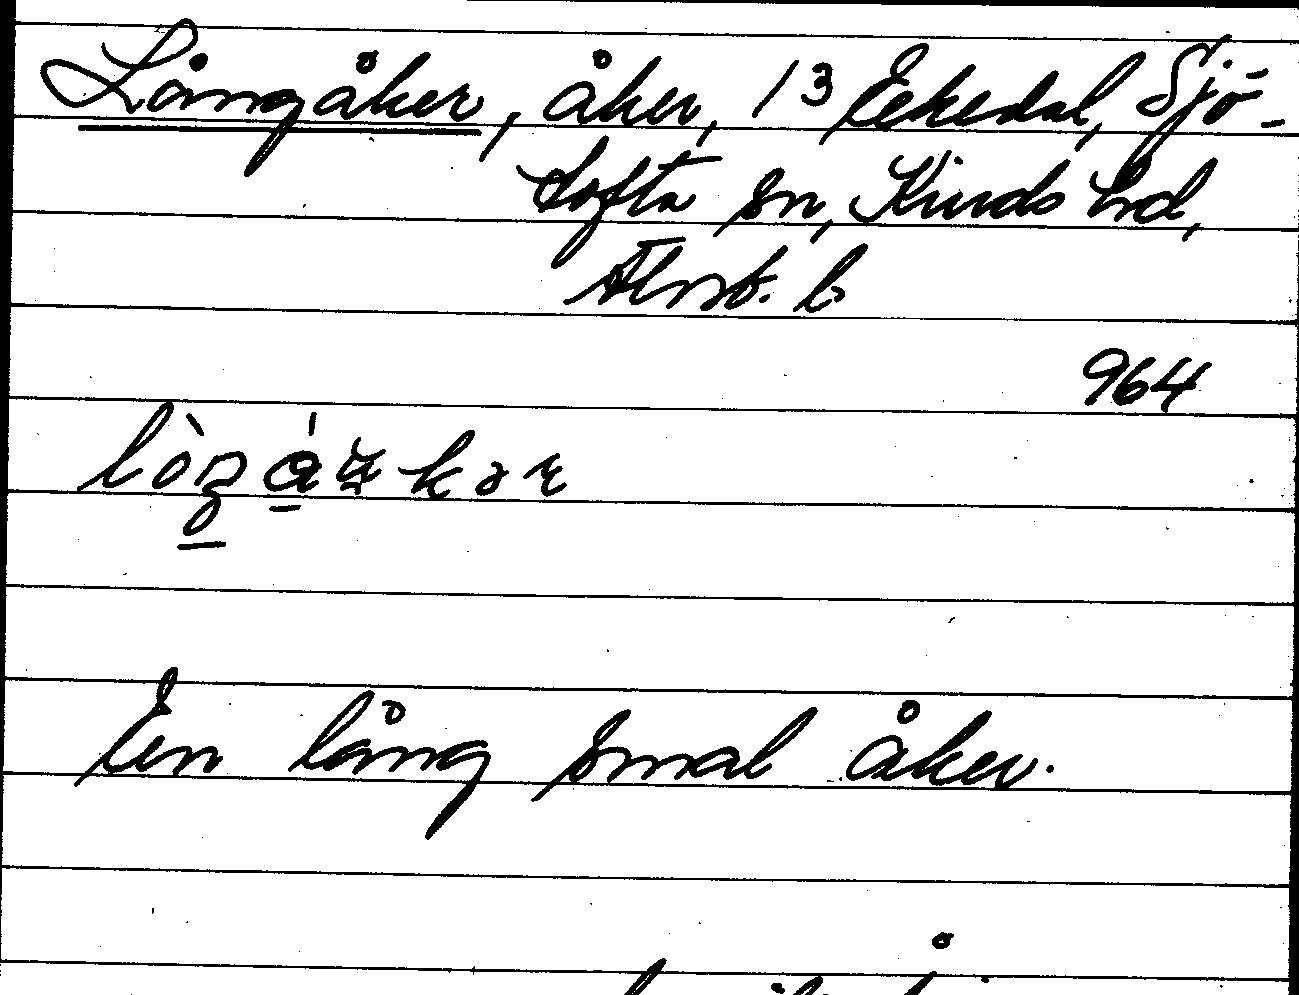 Långåker, åker, 13 Eekedal, Sjö-
tofta sn, Kinds hd,
Älvsb. l.
964
En lång smal åker.